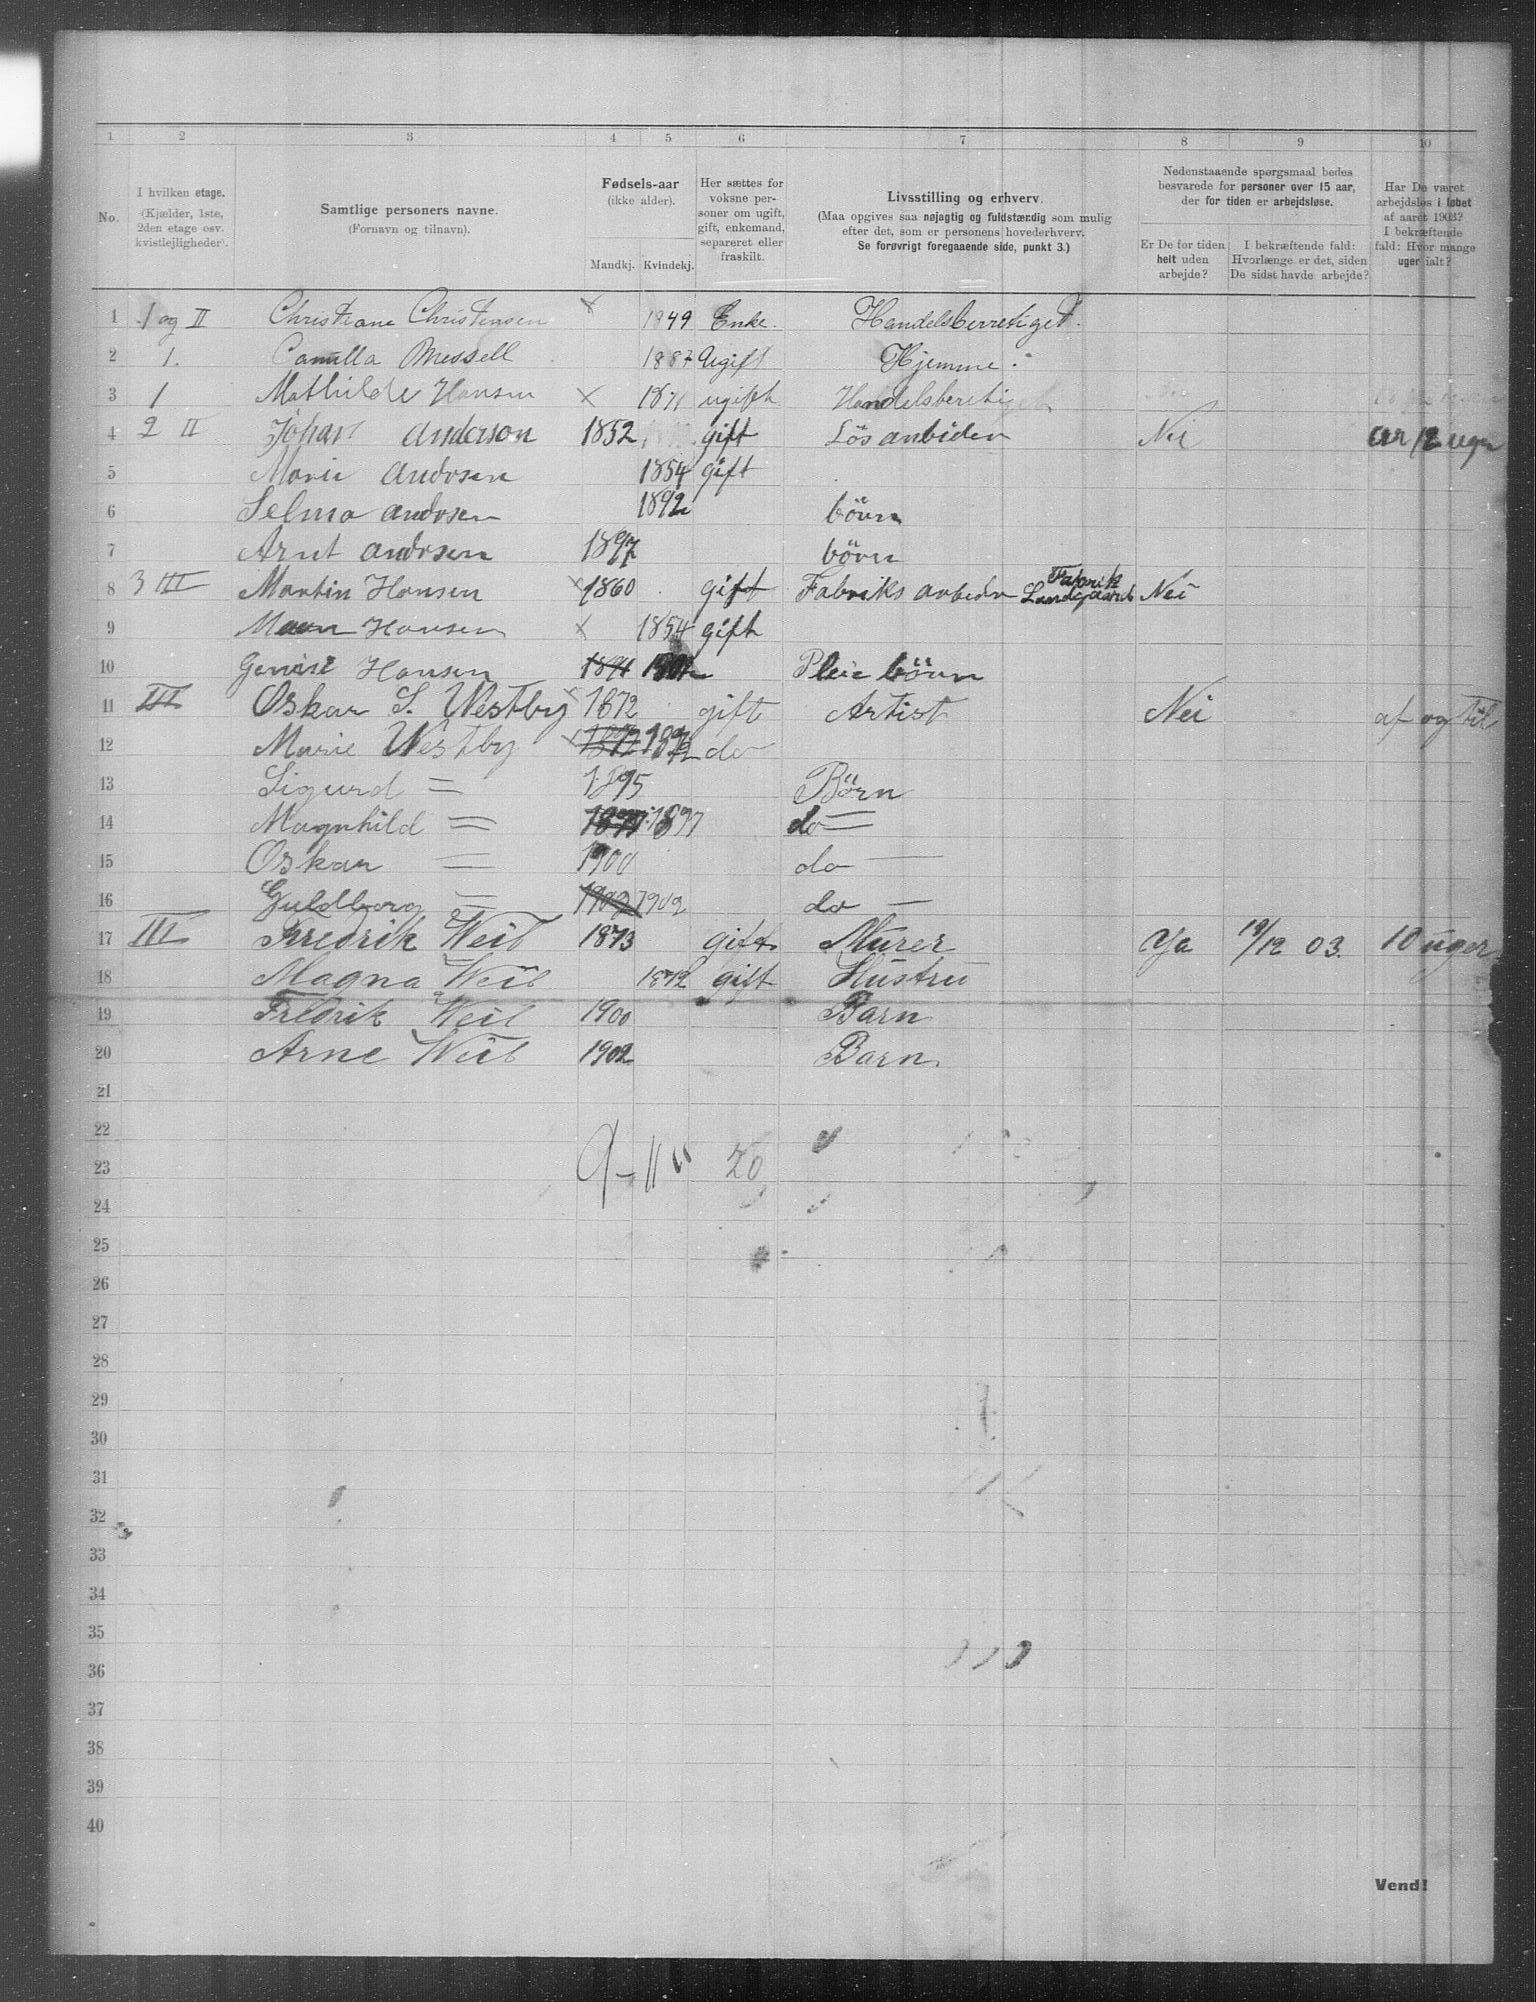 1 2 3 4 5 6 7 8 9 10
No.
I hvilken etage.
(Kjælder, 1ste,
2den etage osv.
kvistlejligheder).
Samtlige personers navne.
(Fornavn og tilnavn).
Fødsels-aar
(ikke alder).
Mandkj. Kvindekj.
Her sættes for
voksne per-
soner om ugift,
gift, enkemand,
separeret eller
fraskilt.
Livsstilling og erhverv.
(Maa opgives saa nøjagtig og fuldstændig som mulig
efter det, som er personens hovederhverv.
Se forøvrigt foregaaende side, punkt 3.)
Nedenstaaende spørgsmaal bedes
besvarede for personer over 15 aar,
der for tiden er arbejdsløse.
Er De for tiden
helt uden
arbejde?
I bekræftende fald:
Hvorlænge er det, siden
De sidst havde arbejde?
Har De været
arbejdsløs i løbet
af aaret 1903?
I bekræftende
fald: Hvor mange
uger ialt?
1 1 og II Christiane Christensen x 1849 Enke. Handelsberretiget.
2 1. Camilla Messell 1887 Ugift Hjemme.
3 1 Mathilde Hansen x 1871 ugift Handelsberetiget
4 2 II Johan Anderson 1852 gift Lösarbider Nei 12 uger
5 Marie Andrsen 1854 gift
6 Selma Andrsen 1892 börn
7 Arnt Andrsen 1897 börn
8 3 III Martin Hansen x 1860 gift Fabriks arbedr Fabrik Lundgaard Nei
9 Hansen x 1854 gift
10 Hansen 1891 Pleie börn
11 III Oskar S. Westby x 1872 gift Artist Nei af og til
12 Marie Westby x 1872 1872 do
13 Sigurd = 1895 Börn
14 Magnhild = 1897 1897 do =
15 Oskar — 1900 do —
16 Guldborg = 1902 1902 do —
17 III Fredrik Weib 1873 gift Murer Ja 19/12 03. 10 uger
18 Magna Weib 1872 gift Hustru
19 Fredrik Weib 1900 Barn
20 Arne Weib 1902 Barn.
21
22
23 9-11 20
24
25
26
27
28
29
30
31
32
33
34
35
36
37
38
39
40
Vend!